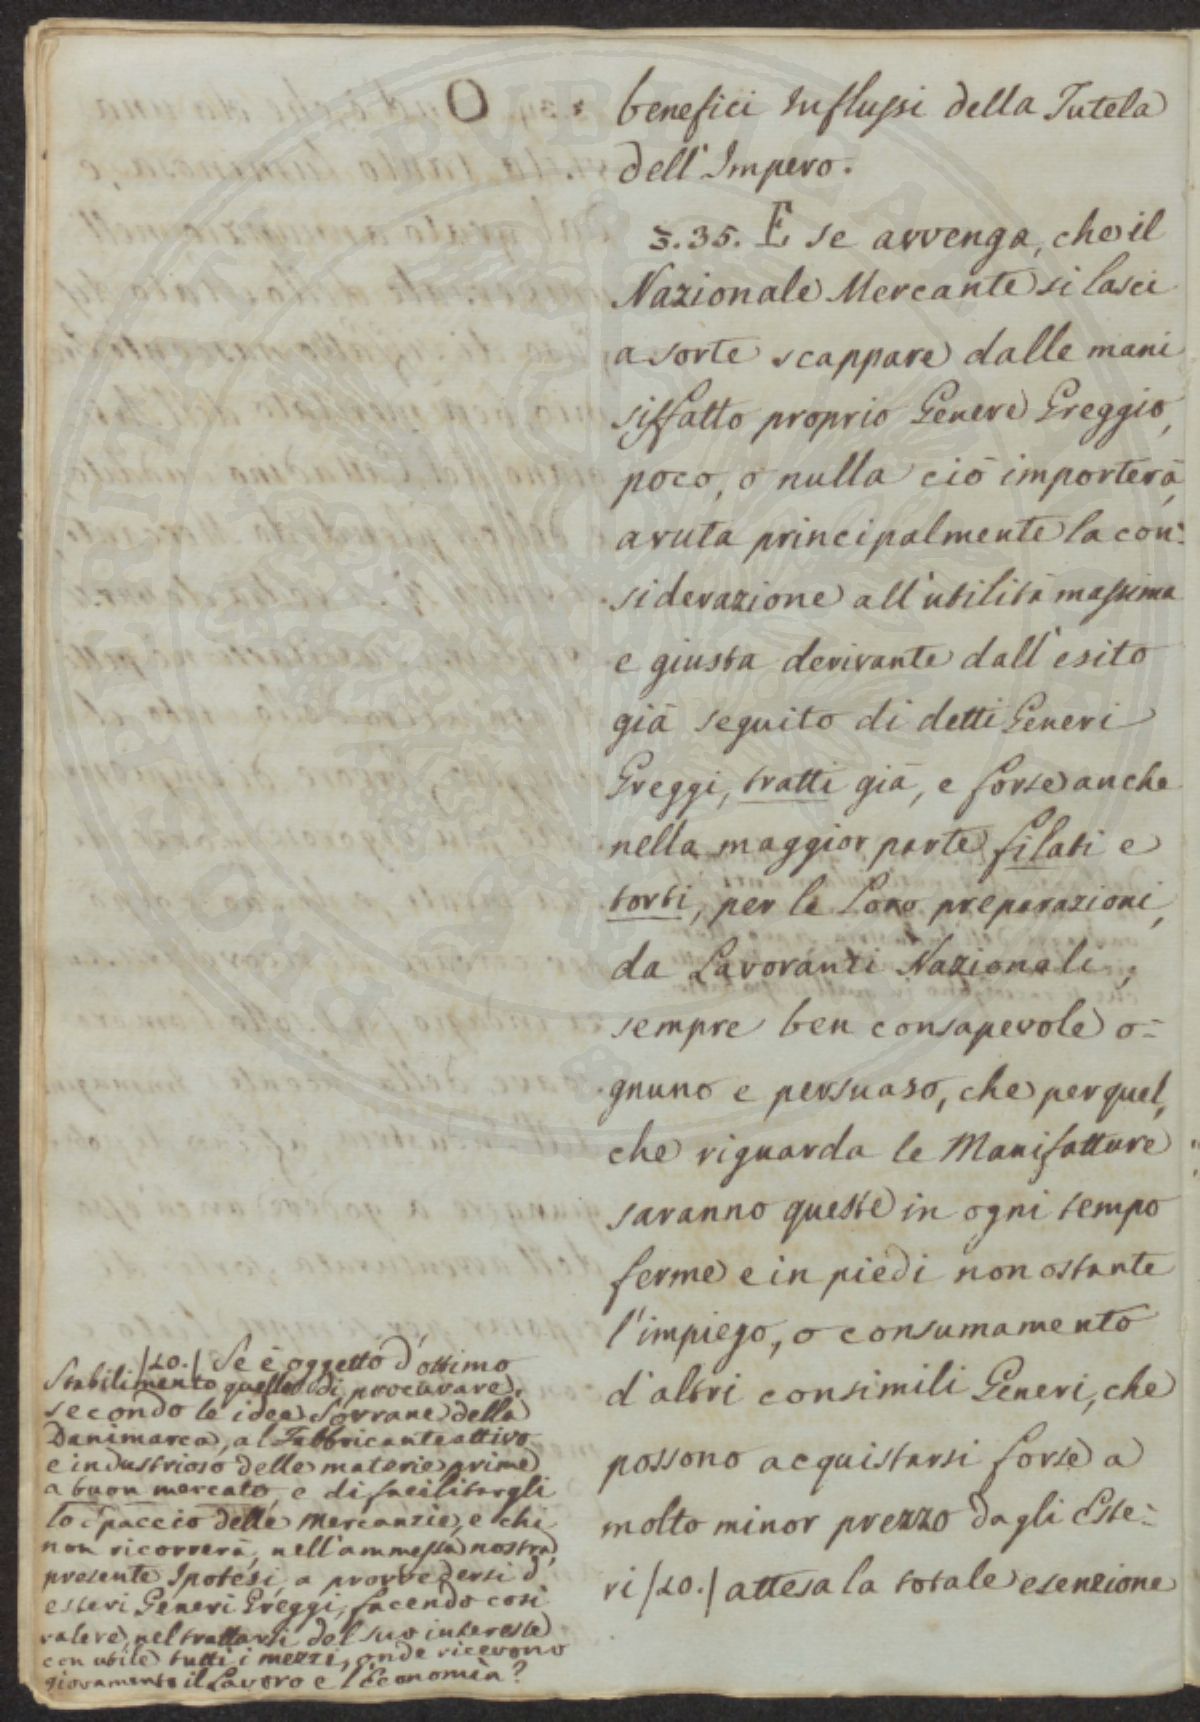 benefici Influssi della Tutela
dell'Impero.
§.35. E se avvenga, che il
Nazionale Mercante si lasci
a sorte scappare dalle mani
siffatto proprio Genere Greggio,
poco, o nulla ciò importerà,
avuta principalmente la con-
siderazione all'utilità massima
e giusta derivante dall'esito
già seguito di detti Generi
Greggi, tratti già, e forse anche
nella maggior parte filati e
torti, per le Loro preparazioni,
da Lavoranti Nazionali,
sempre ben consapevole o-
gnuno e persuaso, che per quel,
che riguarda le Manifatture
saranno queste in ogni tempo
ferme e in piedi non ostante
l'impiego, o consumamento
d'altri consimili Generi, che
possono acquistarsi forse a
molto minor prezzo dagli Este-
ri /20./ attesa la totale esenzione
/20./ Se è oggetto d'ottimo
Stabilimento quello di procurare,
secondo le idee Sovrane della
Danimarca, al Fabbricante attivo
e industrioso delle materie prime
a buon mercato, e di facilitargli
lo Spaccio delle Mercanzie, e chi
non ricorrerà, nell'ammessa nostra
presente Ipotesi, a provvedersi d'
esteri Generi Greggi, facendo così
valere, nel trattarsi del suo interesse
con utile tutti i mezzi, onde ricevono
giovamento il Lavoro e l'Economia?